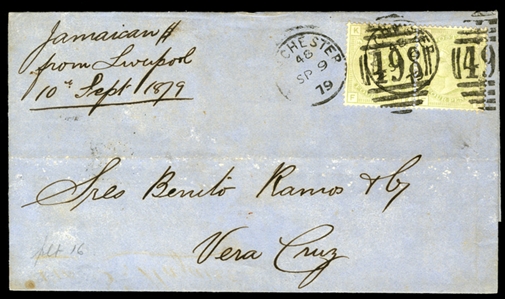 Jamaican $
from Liverpool
10th Sept 1879
CHESTER
48
SP 9
79
498
49
Sres Benito Ramos & Cy
Vera Cruz
plt 16